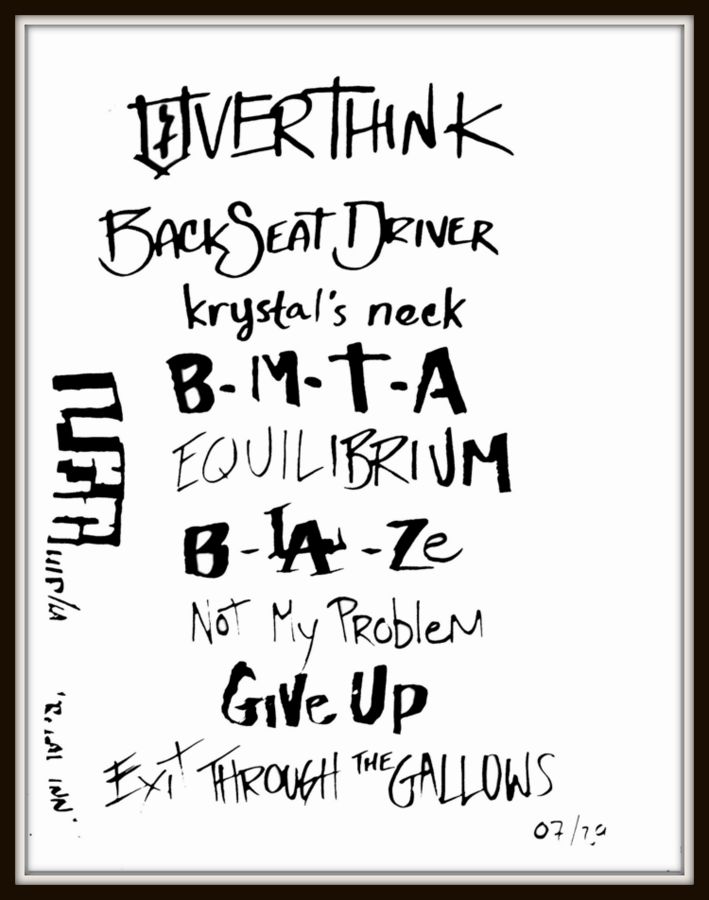 OVERTHINK
BACKSEAT DRIVER
krystal's neck
B-M-T-A
EQUILIBRIUM
B-LA-Ze
NOT My PRoblEM
GiVe Up
EXIT THROUGH THE GALLOWS